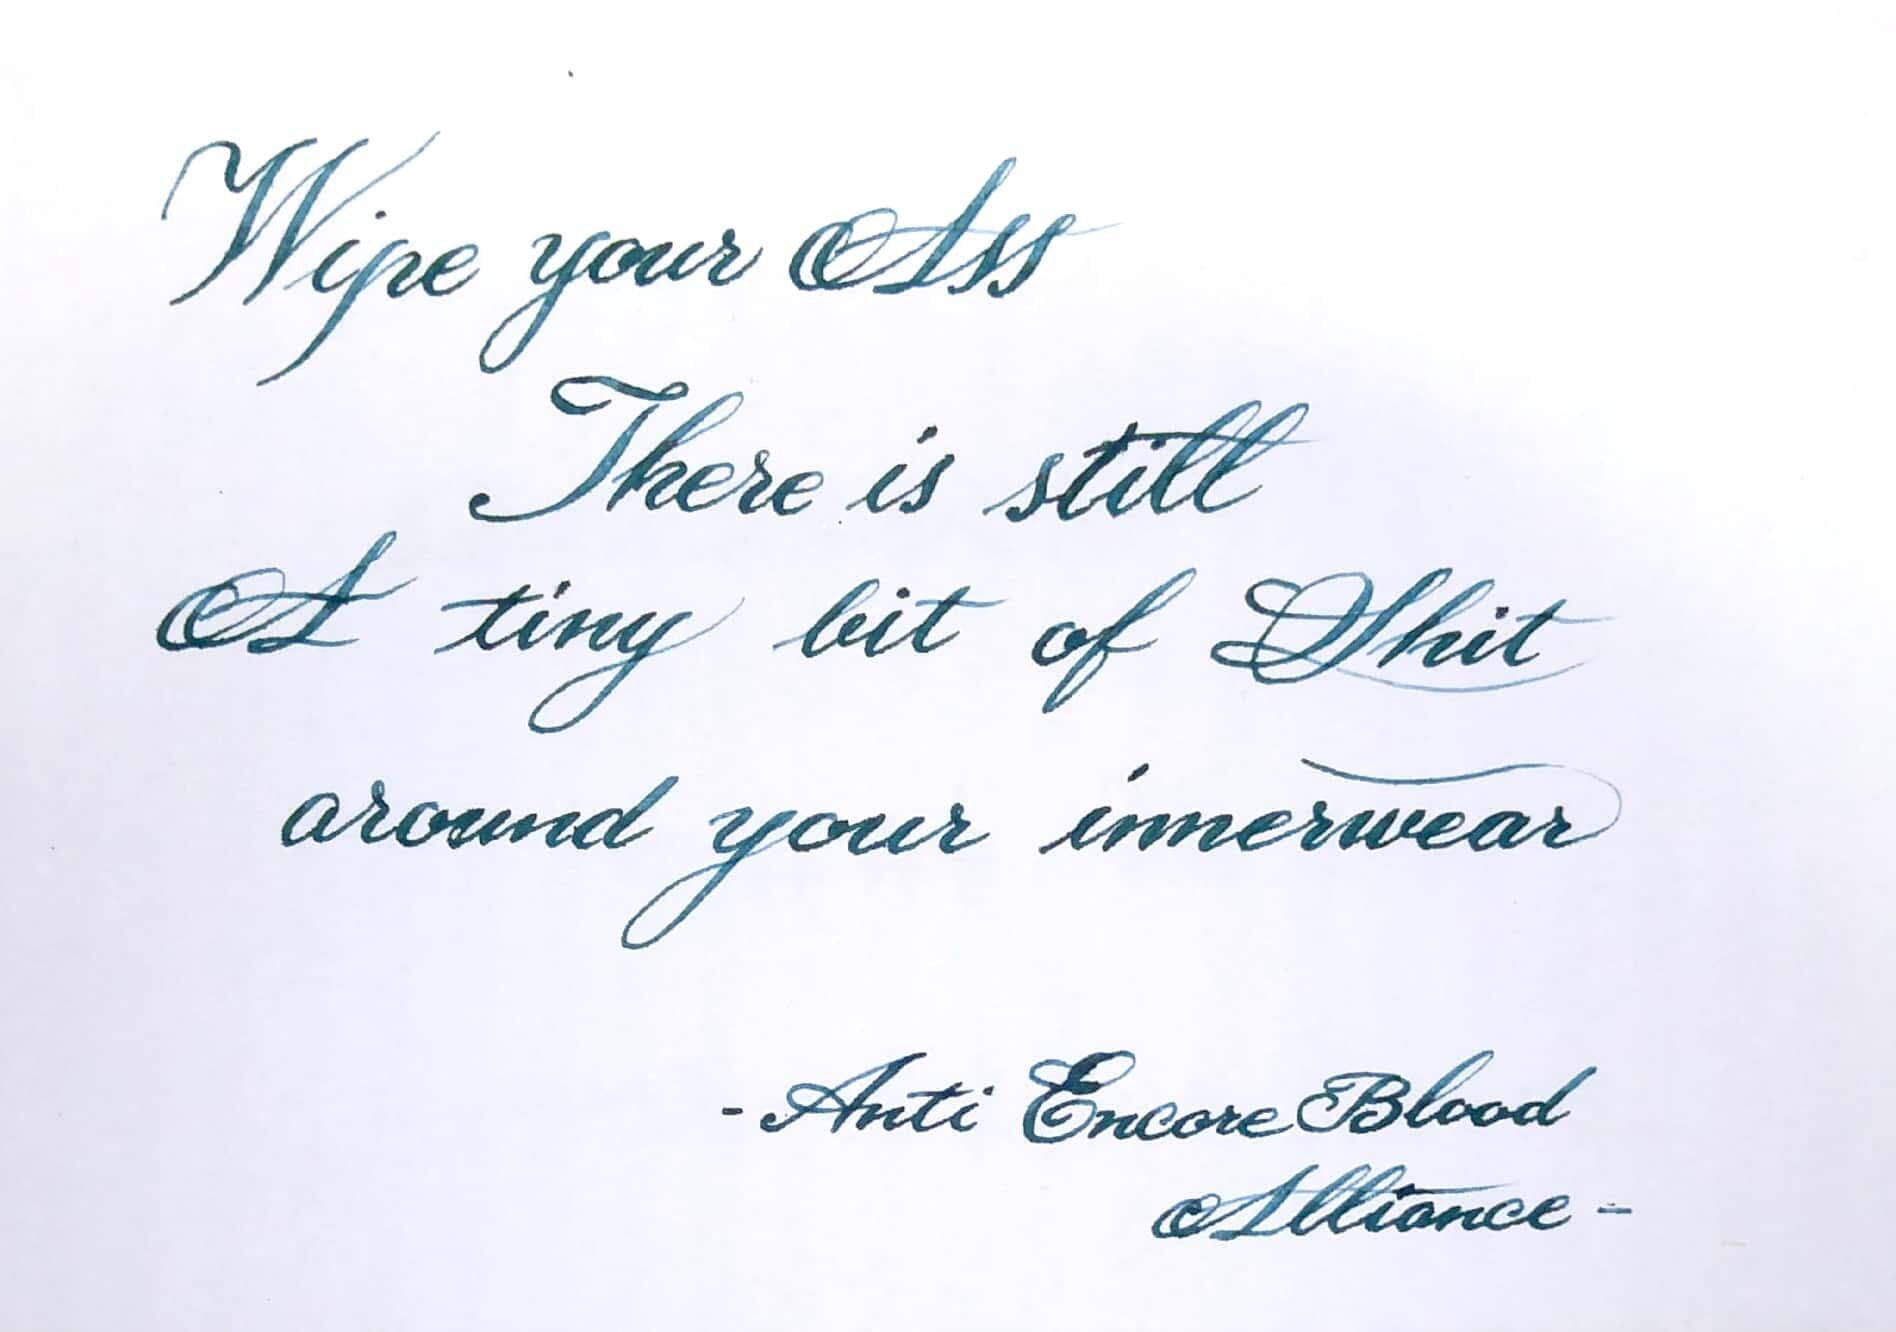 Wipe your Ass
There is still
A tiny bit of Shit
around your innerwear
- Anti Encore Blood
Alliance -